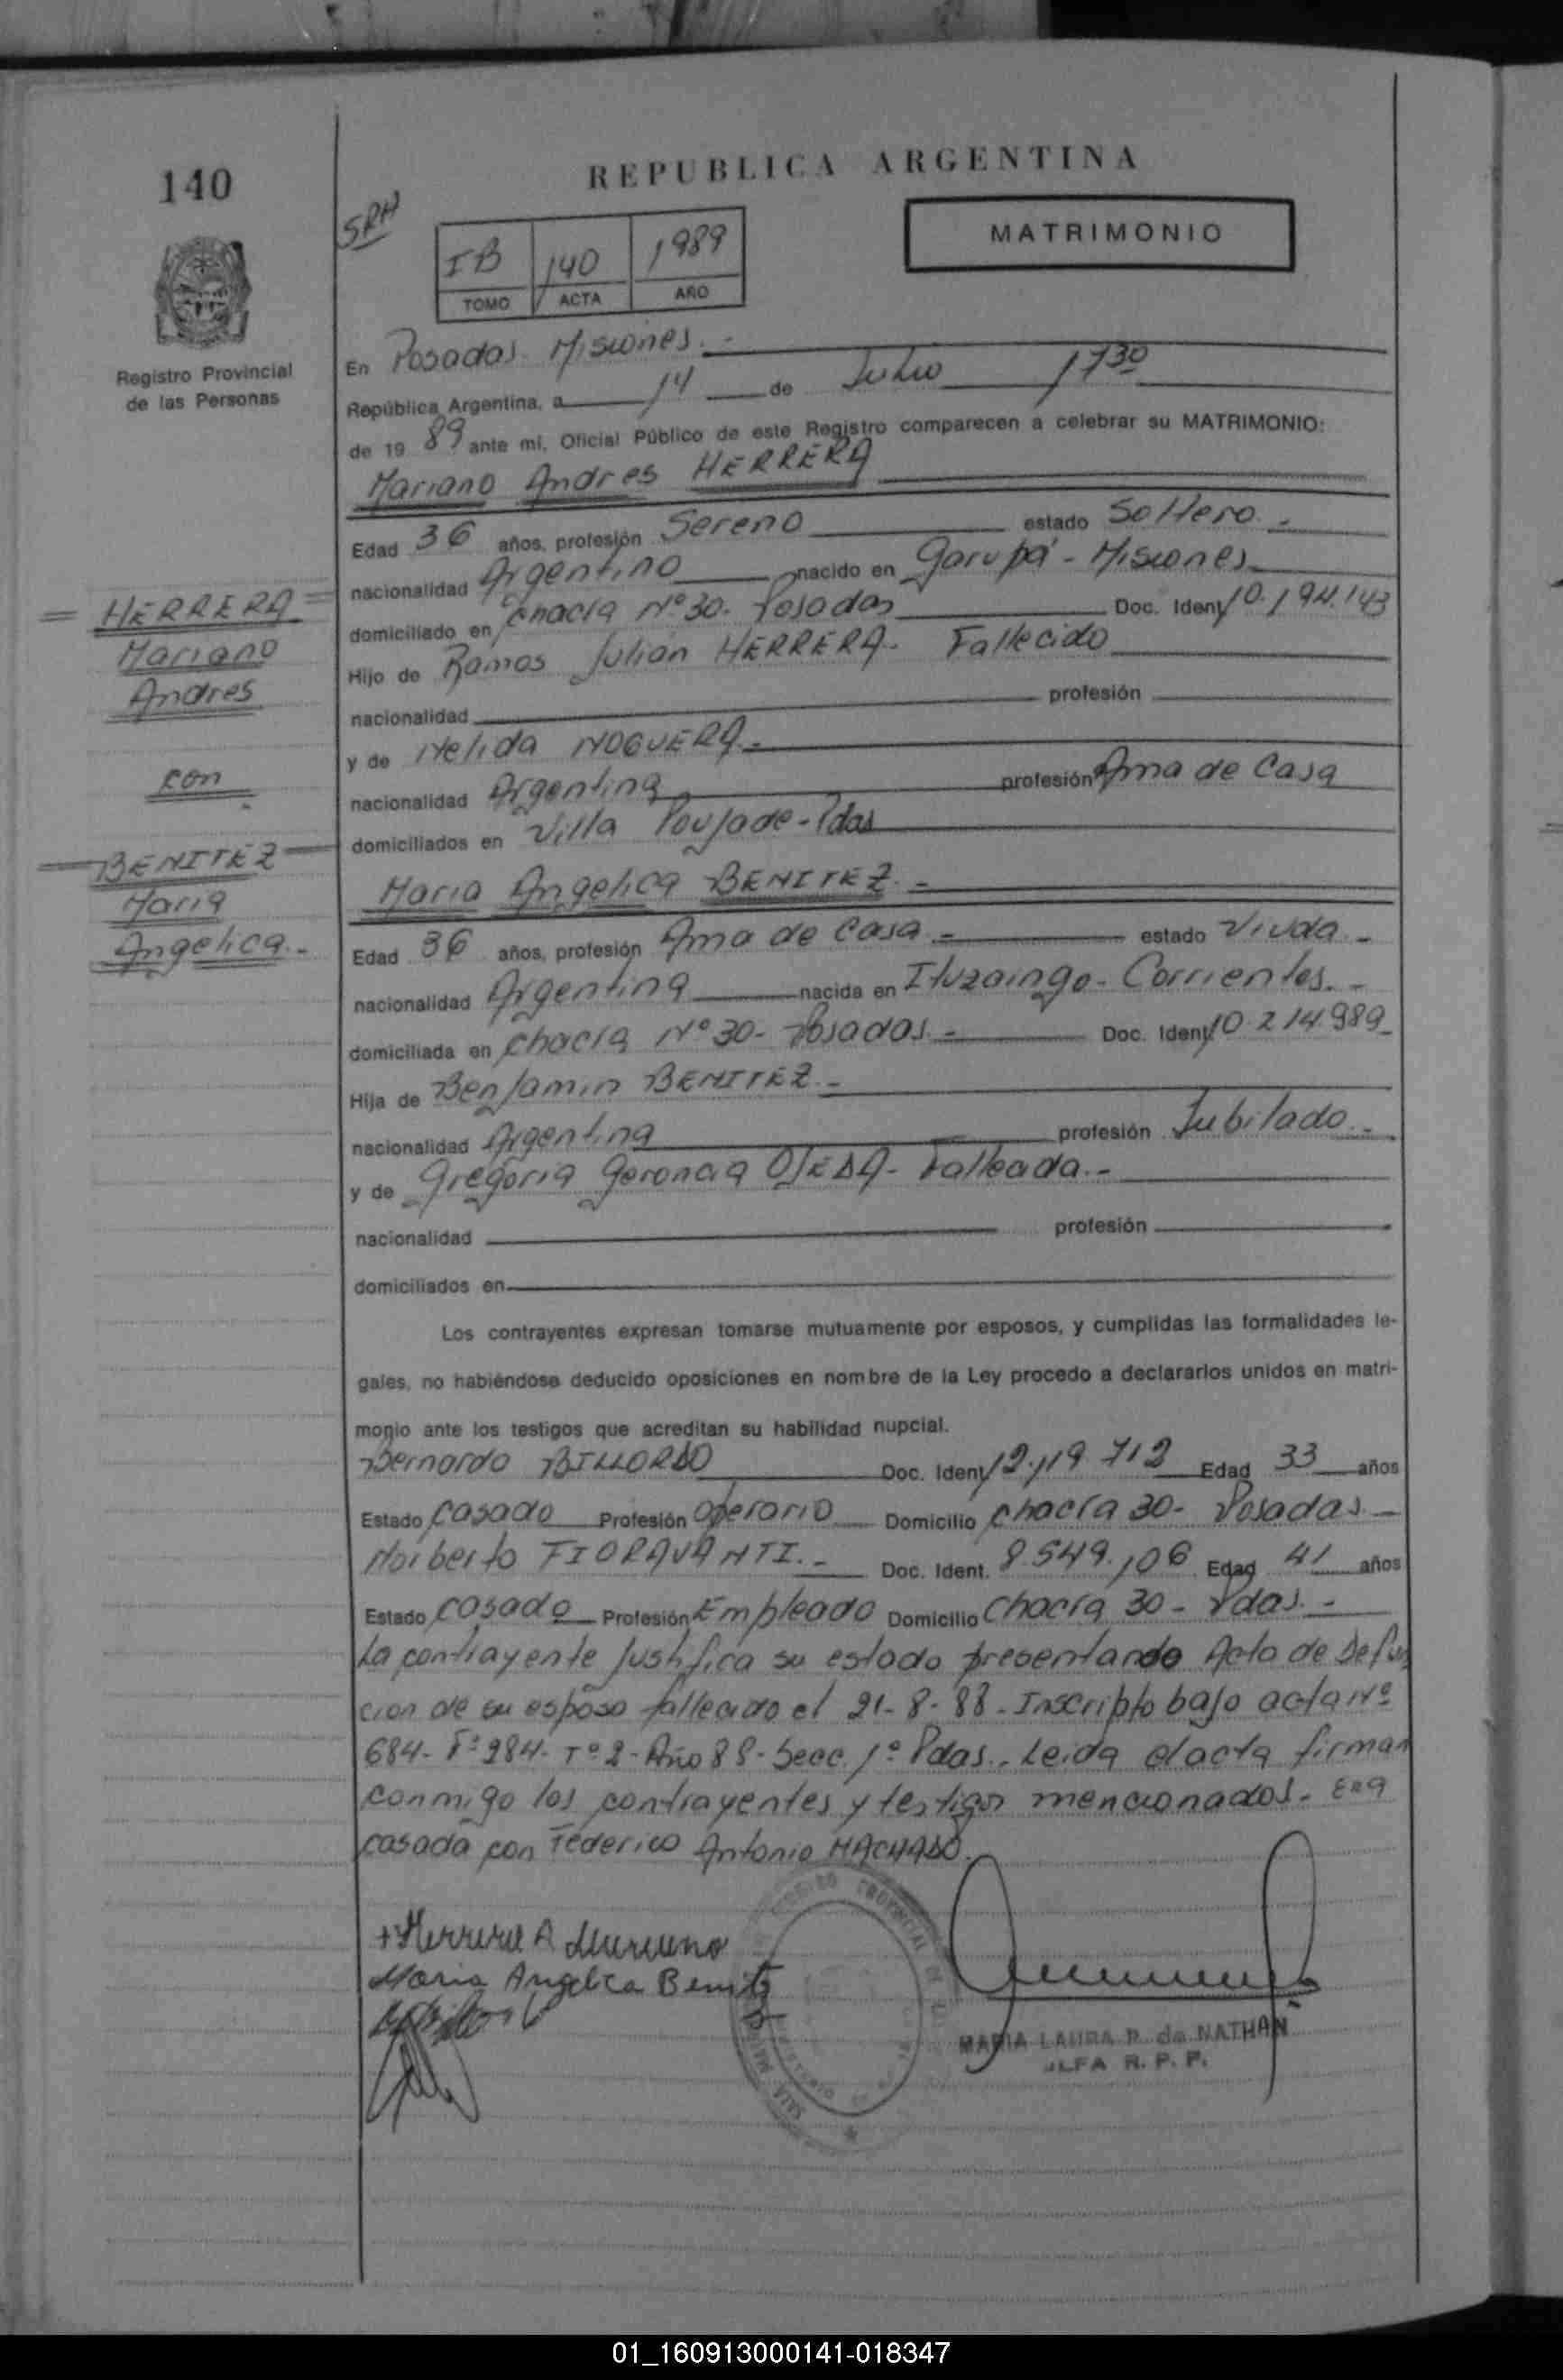 140
REPUBLICA ARGENTINA
SRH
MATRIMONIO
IB 140 1989
TOMO ACTA AÑO
Registro Provincial
de las Personas
En Posadas Misiones.-
República Argentina, a 14 de Julio 17 30
de 19 89 ante mi, Oficial Público de este Registro comparecen a celebrar su MATRIMONIO:
Mariano Andres HERRERA
Edad 36 años, profesión Sereno estado Soltero.-
nacionalidad Argentino nacido en Garupá - Misiones
domiciliado en Chacra Nº 30. Posadas Doc. Ident 10.194.143
Hijo de Ramos Julian HERRERA- Fallecido
nacionalidad profesión
y de Nelida NOGUERA.-
nacionalidad Argentina profesión Ama de Casa
domiciliados en Villa Poujade - Pdas
= HERRERA =
Mariano
Andres
con
BENITEZ
Maria
Angelica.-
Maria Angelica BENITEZ.-
Edad 36 años, profesión Ama de Casa.- estado Viuda.-
nacionalidad Argentina nacida en Ituzaingo- Corrientes.-
domiciliada en Chacra Nº 30- Posadas.- Doc. Ident 10.214.989
Hija de Benjamin BENITEZ.-
nacionalidad Argentina profesión Jubilado.-
y de Gregoria Geroncia OJEDA- Fallecida.-
nacionalidad profesión
domiciliados en
Los contrayentes expresan tomarse mutuamente por esposos, y cumplidas las formalidades le-
gales, no habiéndose deducido oposiciones en nombre de la Ley procedo a declararlos unidos en matri-
monio ante los testigos que acreditan su habilidad nupcial.
Bernardo BILLORDO Doc. Ident 12.119.712 Edad 33 años
Estado Casado Profesión Operario Domicilio Chacra 30- Posadas.-
Norberto FIORAVANTI.- Doc. Ident. 8.549.106 Edad 41 años
Estado Casado Profesión Empleado Domicilio Chacra 30 - Pdas.-
La contrayente justifica su estado presentando Acta de Defun
cion de su esposo fallecido el 21-8-88- Inscripto bajo acta Nº
684- Fº 284- Tº 2- Año 88- Secc. 1º Pdas.- Leida el acta firman
conmigo los contrayentes y testigos mencionados. Era
casada con Federico Antonio MACHADO.
+Herrera A Mariano
Maria Angelica Benitez
MARIA LAURA P. de NATHAN
JEFA R. P. P.
01_160913000141-018347